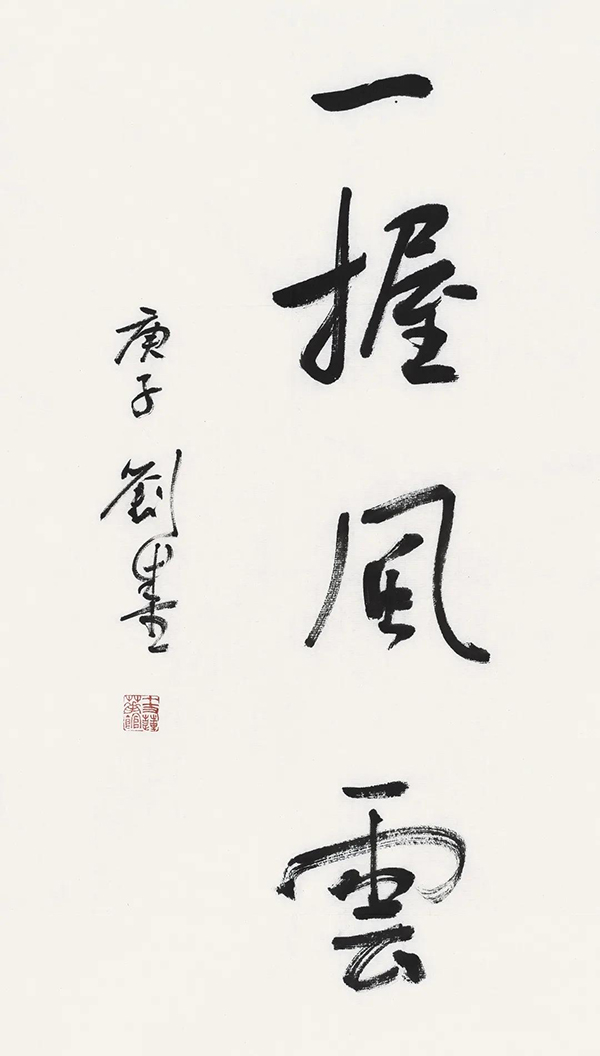 一握風雲
庚子劉墨